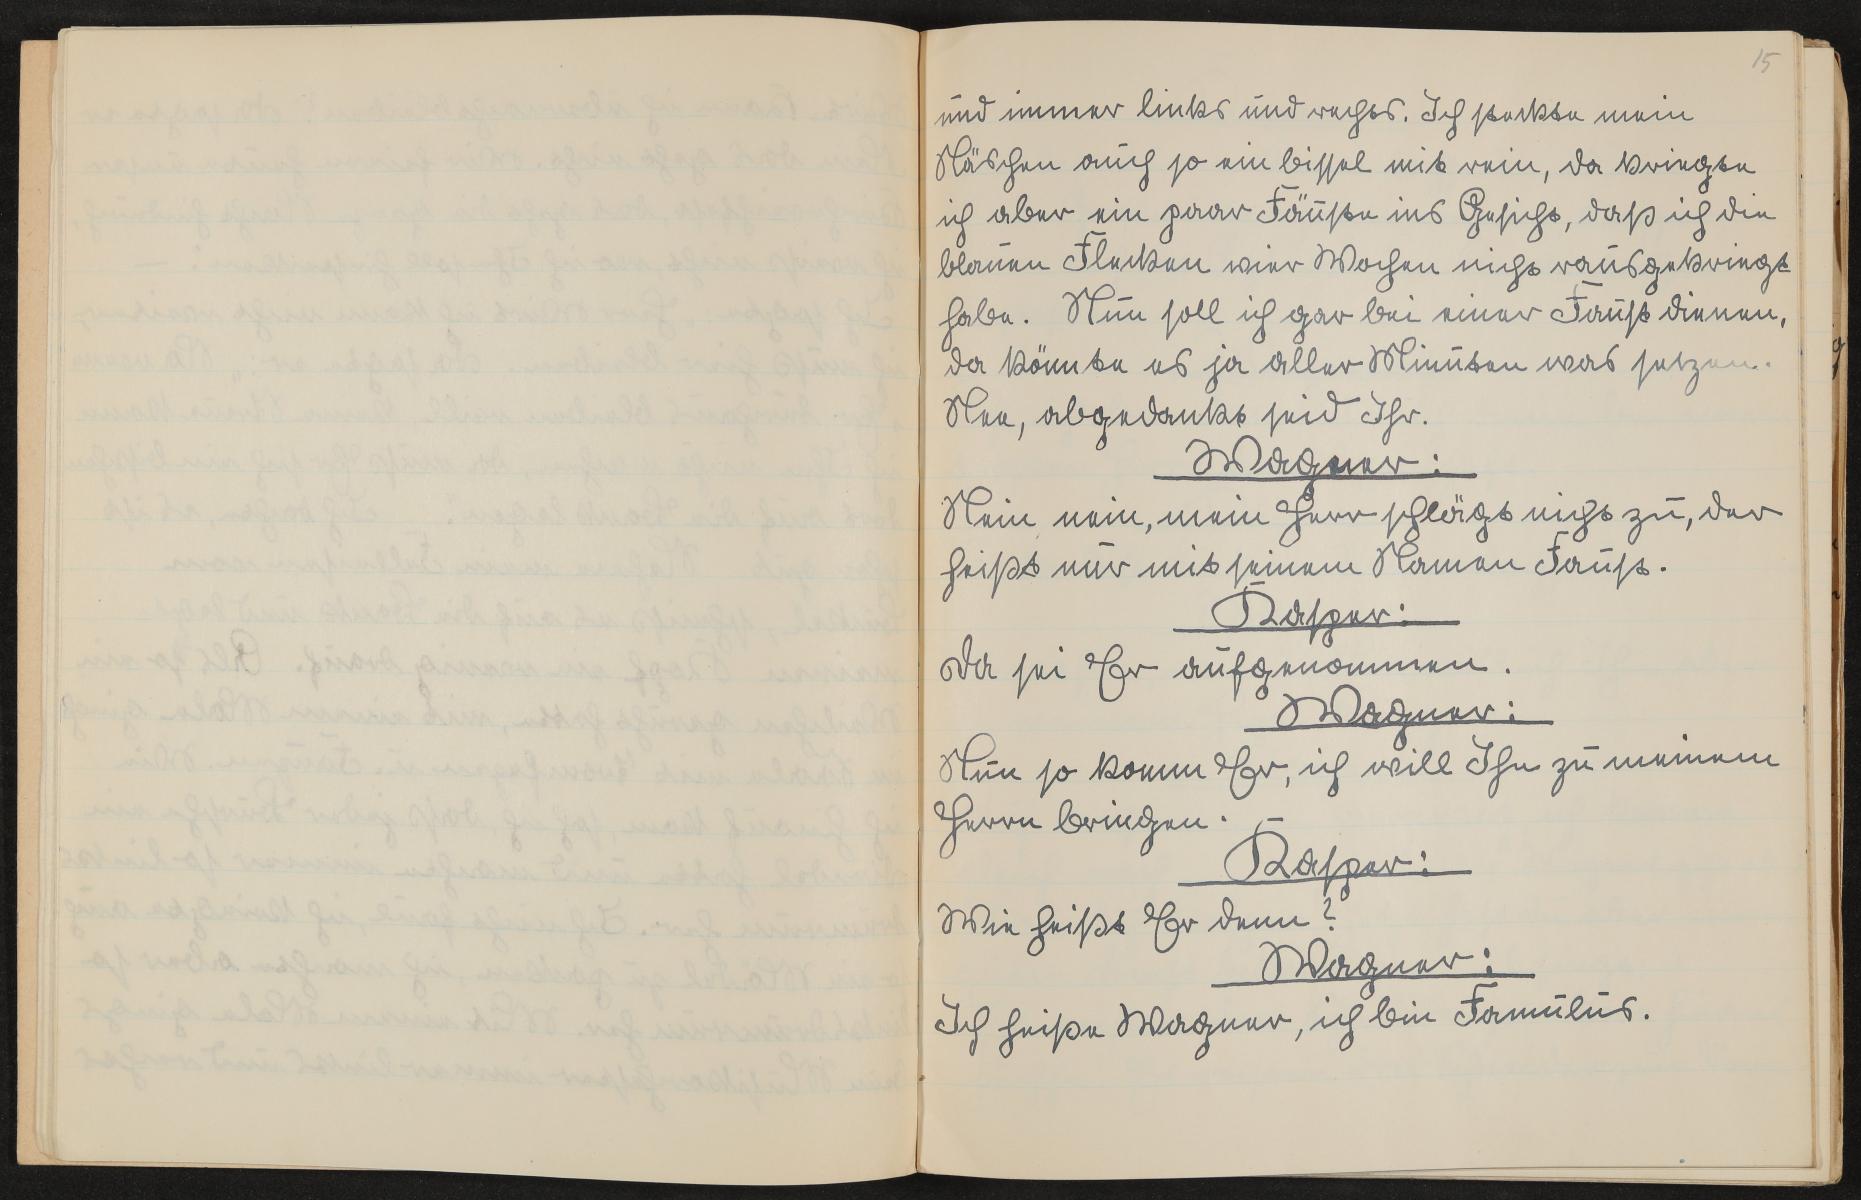 15
und immer links und rechts. Ich steckte mein
Näschen auch so ein bissel mit rein, da kriegte
ich aber ein paar Fäuste ins Gesicht, daß ich die
blauen Flecken vier Wochen nicht rausgekriegt
habe. Nun soll ich gar bei einer Faust dienen,
da könnte es ja aller Minuten was setzen.
Nee, abgedankt seid Ihr.
Wagner:
Nein nein, mein Herr schlägt nicht zu, der
heißt nur mit seinem Namen Faust.
Kasper:
Da sei Er aufgenommen.
Wagner:
Nun so komm Er, ich will Ihn zu meinem
Herrn bringen.
Kasper:
Wie heißt Er denn?
Wagner:
Ich heiße Wagner, ich bin Famulus.